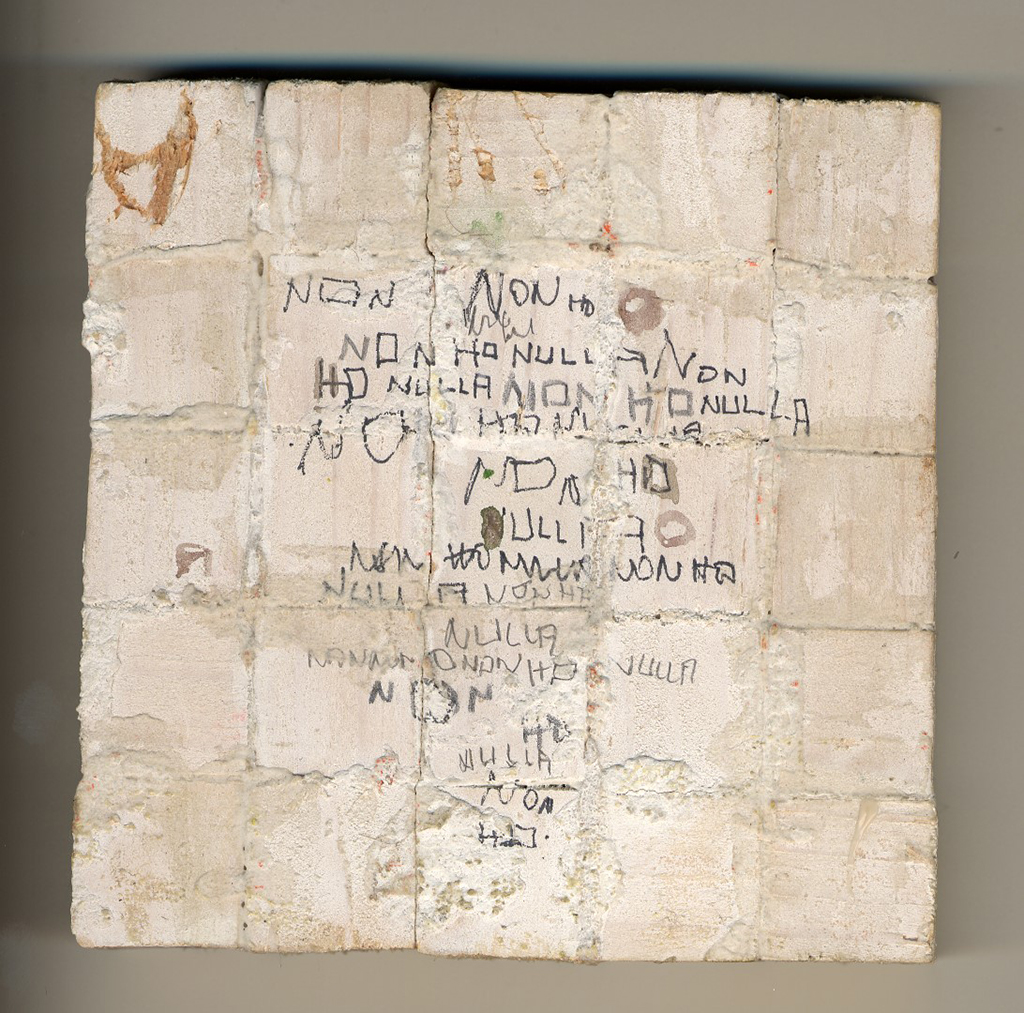 NON NON HO
NON HO NULLA NON
HO NULLA NON HO NULLA
NO
NON HO
NULLA
NON HO NULLA NON HO
NULLA NON HO
NULLA
NON HO NULLA
NON
HO
NULLA
NON
HO.